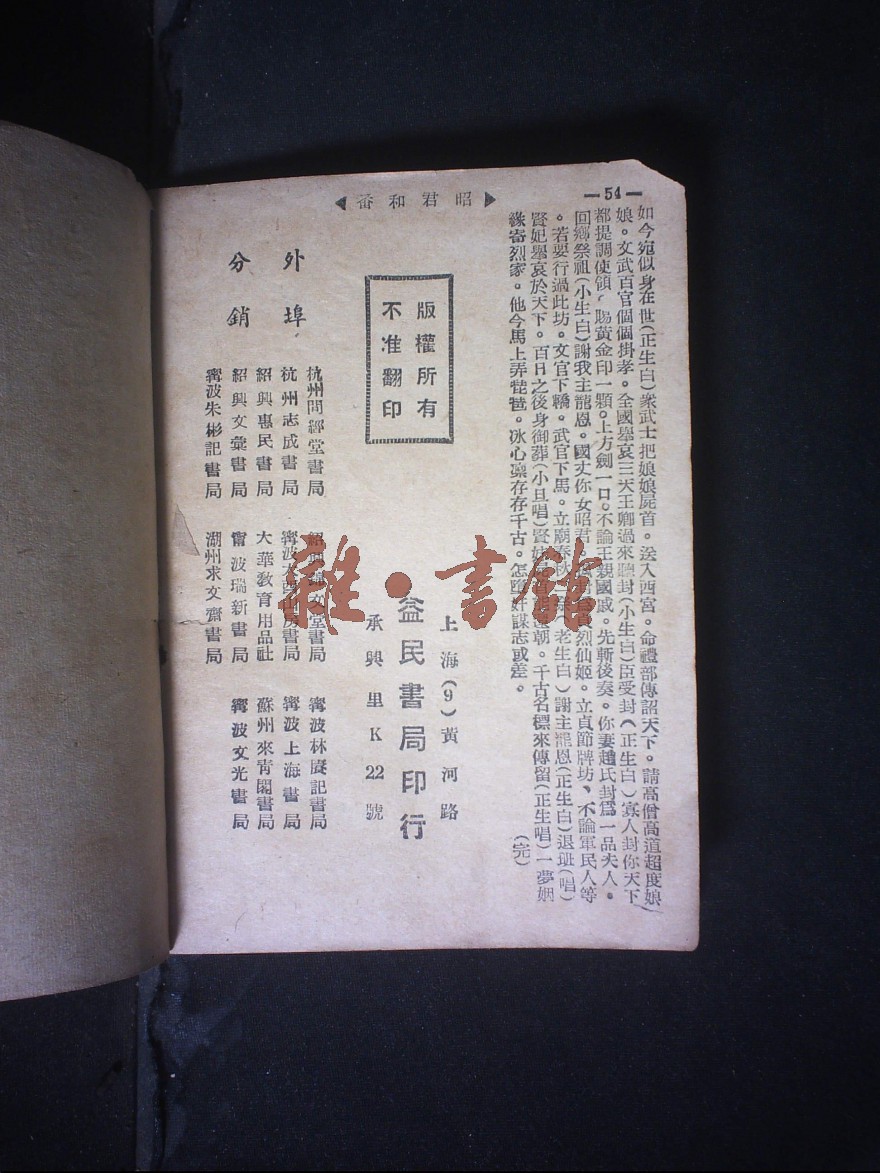 —54—
▶昭君和番◀
如今宛似身在世(正生白)衆武士把娘娘屍首。送入西宮。命禮部傳詔天下。請高僧高道超度娘
娘。文武百官個個掛孝。全國舉哀三天王卿過來聽封(小生白)臣受封(正生白)寡人封你天下
都提調使領。賜黃金印一顆。上方劍一口。不論王親國戚。先斬後奏。你妻趙氏封爲一品夫人。
回鄉祭祖(小生白)謝我主寵恩。國丈你女昭君烈仙姬。立貞節牌坊、不論軍民人等
。若要行過此坊。文官下轎。武官下馬。立廟春秋老生白)謝主寵恩(正生白)退班(唱)
賢妃舉哀於天下。百日之後身御葬(小旦唱)賢朝。千古名標來傳留(正生唱)一夢姻
緣害烈家。他今馬上弄琵琶。冰心凛存存千古。怎墮奸謀志或差。
(完)
版權所有
不准翻印
上海(9)黃河路
益民書局印行
承興里K22號
外埠
分銷
杭州問經堂書局
杭州志成書局
紹興惠民書局
紹興文彙書局
寗波朱彬記書局
紹興文堂書局
寗波大酉山房書局
大華教育用品社
甯波瑞新書局
湖州求文齋書局
寗波林賡記書局
寗波上海書局
蘇州來青閣書局
寗波文光書局
雜·書館